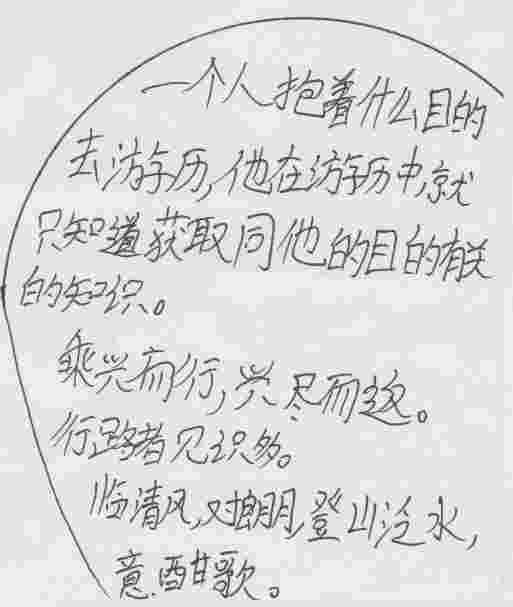 一个人抱着什么目的
去游历,他在游历中,就
只知道获取同他的目的有关
的知识。
乘兴而行,兴尽而返。
行路者见识多。
临清风,对朗月,登山泛水,
意酣歌。